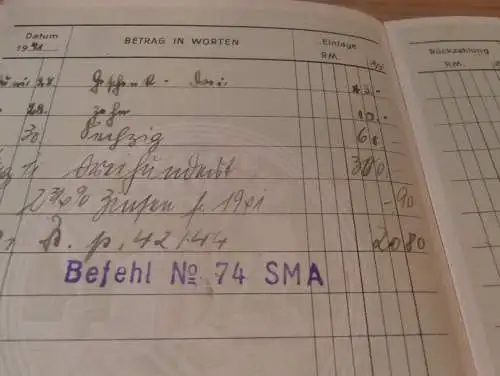 Datum BETRAG IN WORTEN Einlage Rückzahlung
1941 RM. RM.
28. Geschenk - Drei 3.-
28. zehn 10.-
30 Sechzig 60 -
11 dreihundert 300 -
2 % Zinsen f. 1941 -.90
Z. p. 42/44 20 80
Befehl № 74 SMA